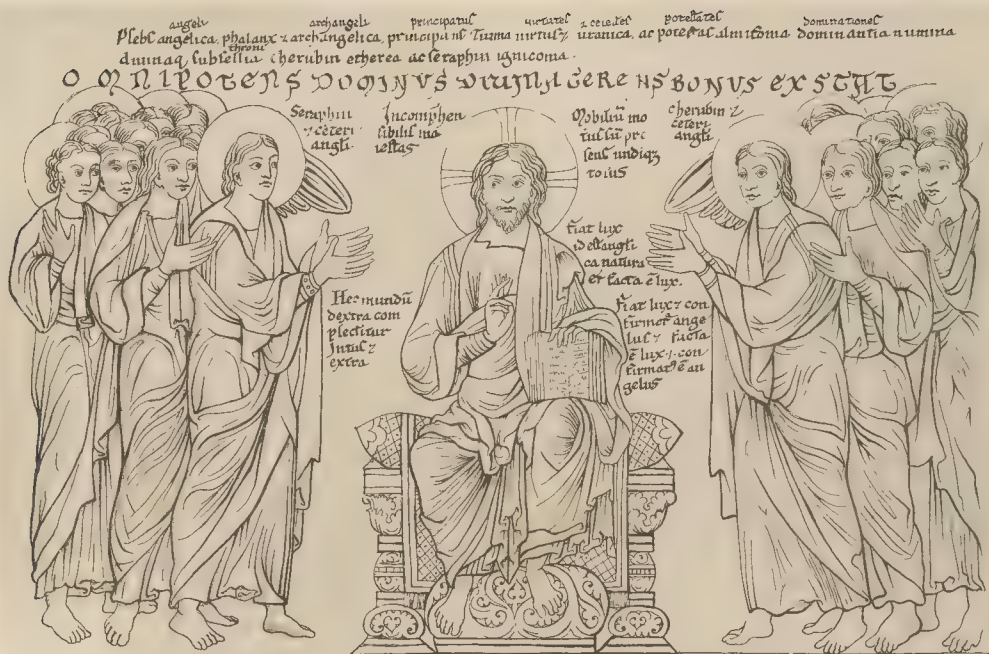 angeli archangeli principatus virtutes ⁊ celestes potestates dominationes
Plebs angelica, phalanx ⁊ archangelica, principans turma virtus ⁊ uranica, ac potestas almifona dominantia numina
throni
divinaq subsellia cherubin etherea ac seraphin ignicoma.
OMNIPOTENS DOMINUS GERENS BONUS EXSTAT
Seraphin
⁊ ceteri
angli.
Incomphen
sibilis ma
iestas
Mobiliū mo
tus
sens undiqz
totus
Cherubin ⁊
ceteri
angli
Fiat lux
id est angli
ca natura
et facta ē lux.
Hec mundū
dextra com
plectitur
Intus ⁊
extra
Fiat lux ⁊ con
firmet ange
lus ⁊ facta
ē lux con
firmat' ē an
gelus